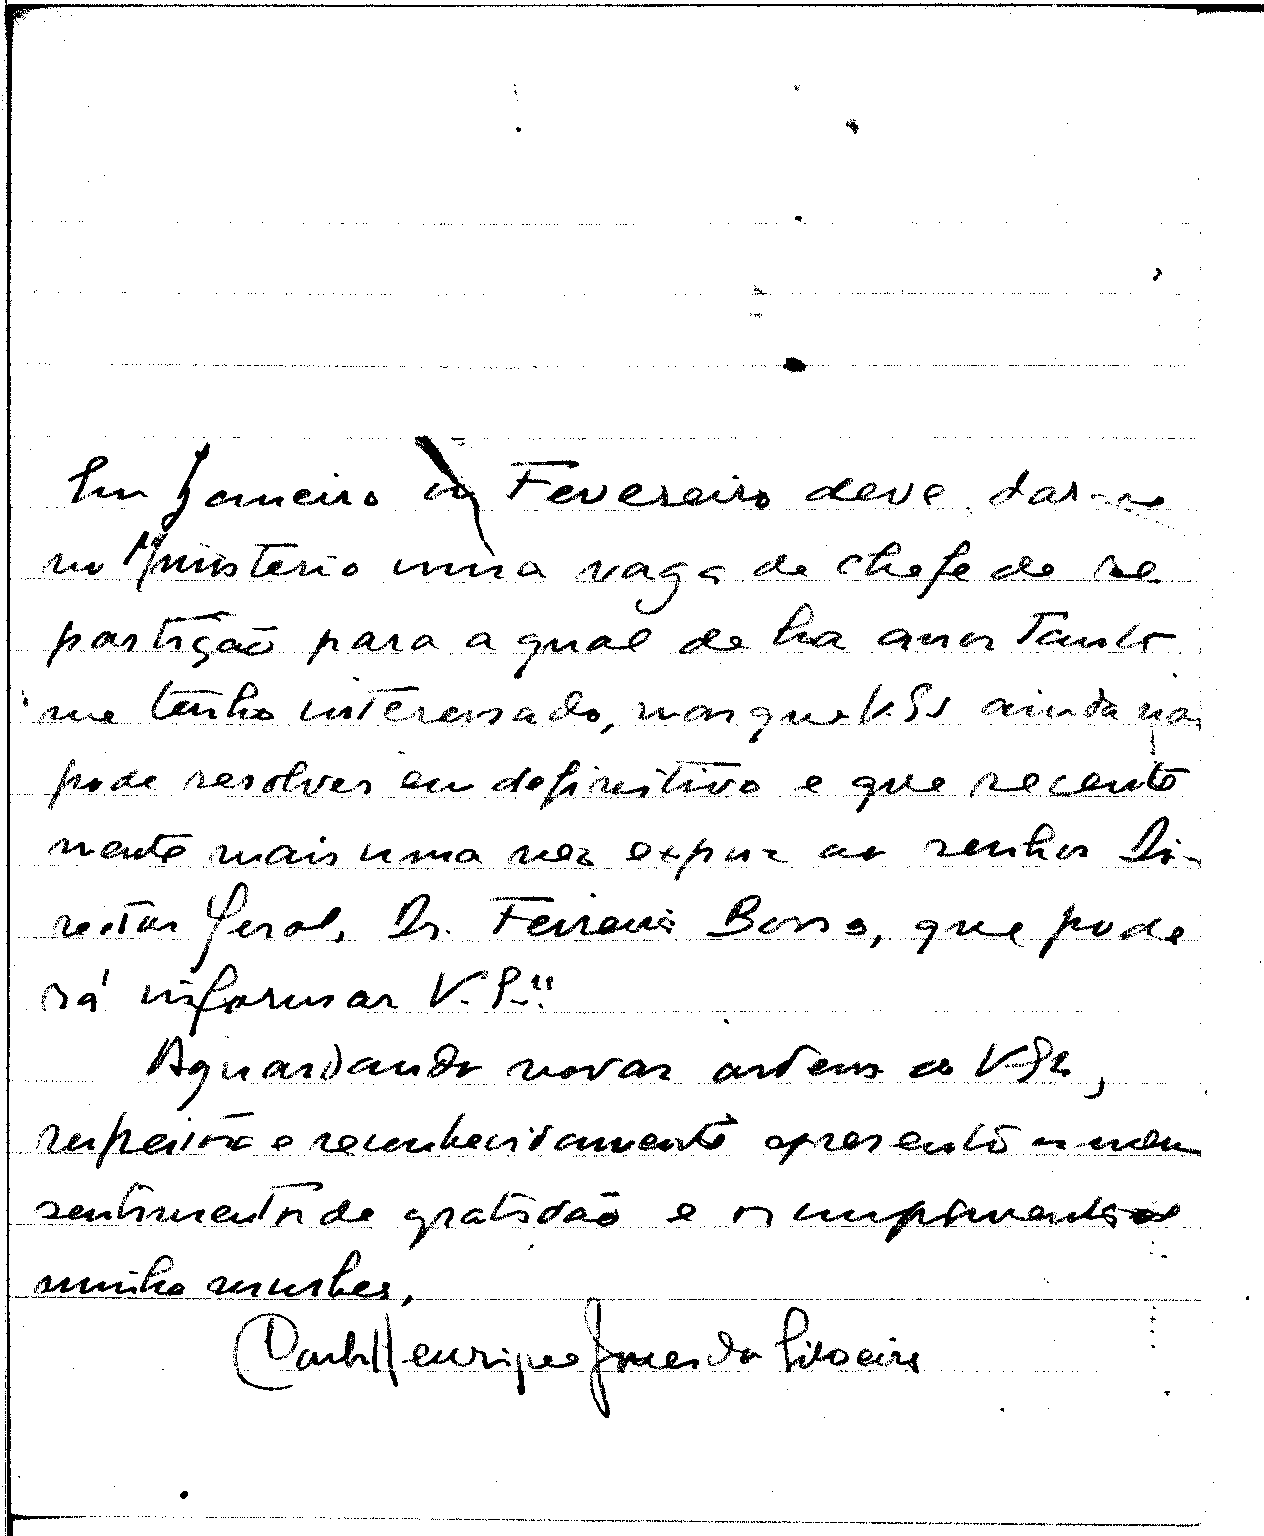 Em Janeiro ou Fevereiro deve dar-se
no Ministerio uma vaga de chefe de re
partição para a qual de ha anos tanto
me tenho interessado, mas que V. Ex ainda não
pode resolver em definitivo e que recente
mente mais uma vez expuz ao senhor Di-
rector Geral, Dr. Ferreira Bossa, que pode
rá informar V. Ex.
Aguardando novas ordens de V. Ex,
respeitosa e reconhecidamente apresento os meus
sentimentos de gratidão e os cumprimentos de
minha mulher,
Henrique Jones da Silveira